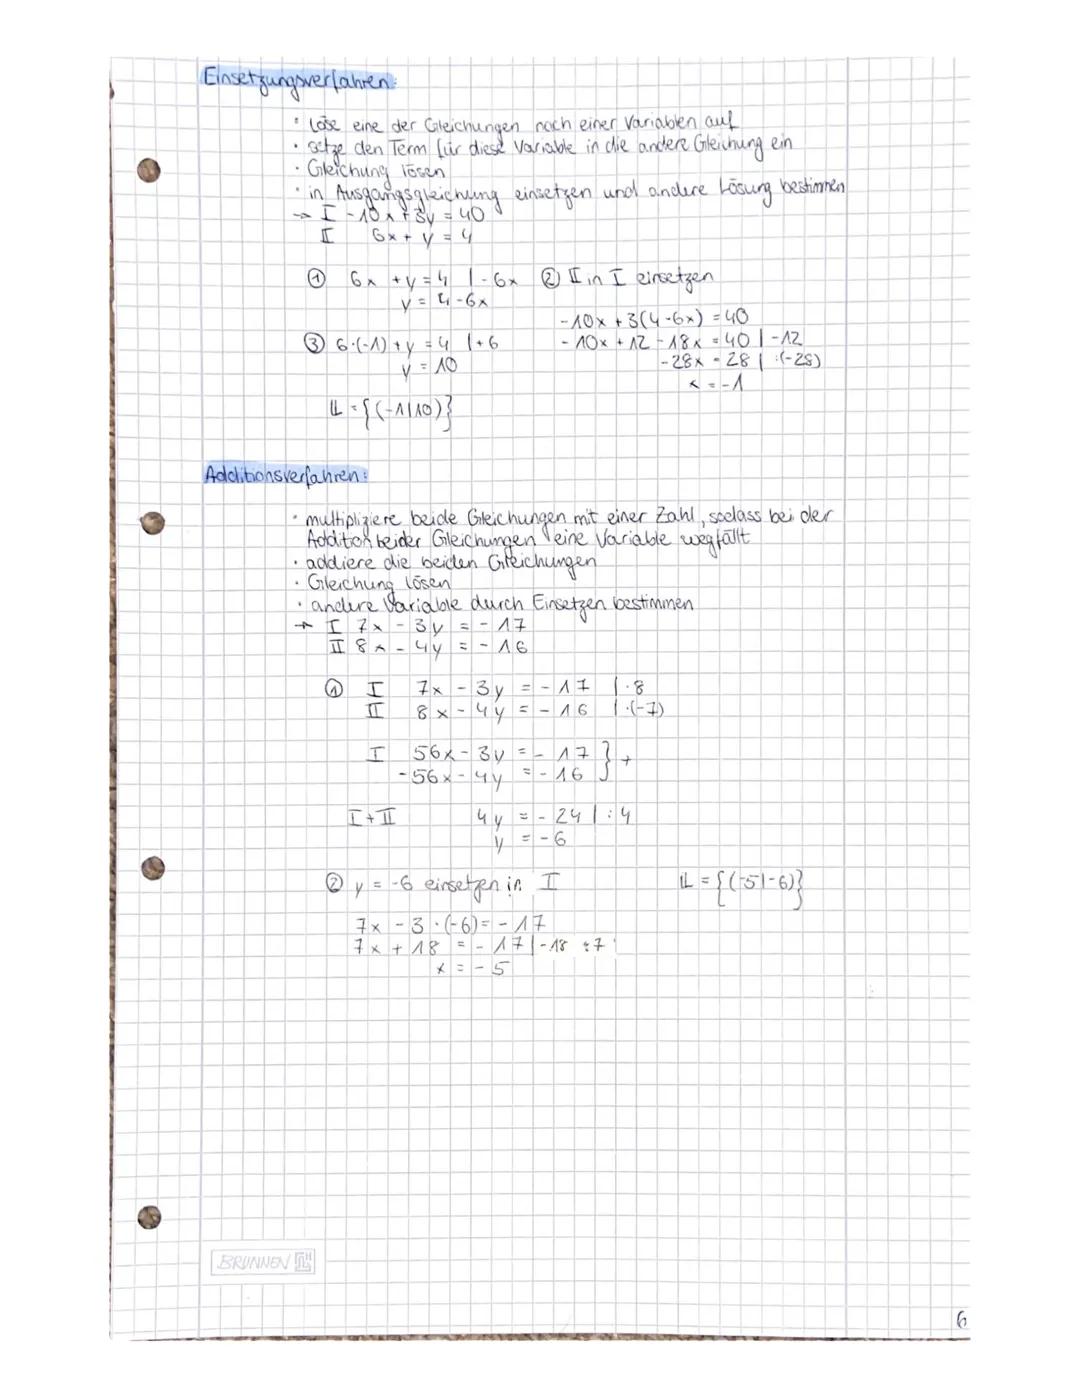 Einsetzungsverfahren:
· löse eine der Gleichungen nach einer Variablen auf
· setze den Term für diese Variable in die andere Gleichung ein
· Gleichung lösen
· in Ausgangsgleichung einsetzen und andere Lösung bestimmen
→ I -10x + 3y = 40
II 6x + y = 4
① 6x + y = 4 | -6x ② II in I einsetzen
y = 4 - 6x
-10x + 3(4-6x) = 40
③ 6·(-1) + y = 4 | +6 -10x + 12 - 18x = 40 | -12
y = 10 -28x = 28 | :(-28)
x = -1
𝕃 = {(-1|10)}
Additionsverfahren:
· multipliziere beide Gleichungen mit einer Zahl, sodass bei der
Addition beider Gleichungen eine Variable wegfällt
· addiere die beiden Gleichungen
· Gleichung lösen
· andere Variable durch Einsetzen bestimmen
→ I 7x - 3y = -17
II 8x - 4y = -16
① I 7x - 3y = -17 | ·8
II 8x - 4y = -16 | ·(-7)
I 56x - 3y = -17 } +
-56x - 4y = -16
I + II 4y = -24 | : 4
y = -6
② y = -6 einsetzen in I 𝕃 = {(-5|-6)}
7x - 3 · (-6) = -17
7x + 18 = -17 | -18 :7
x = -5
BRUNNEN
6